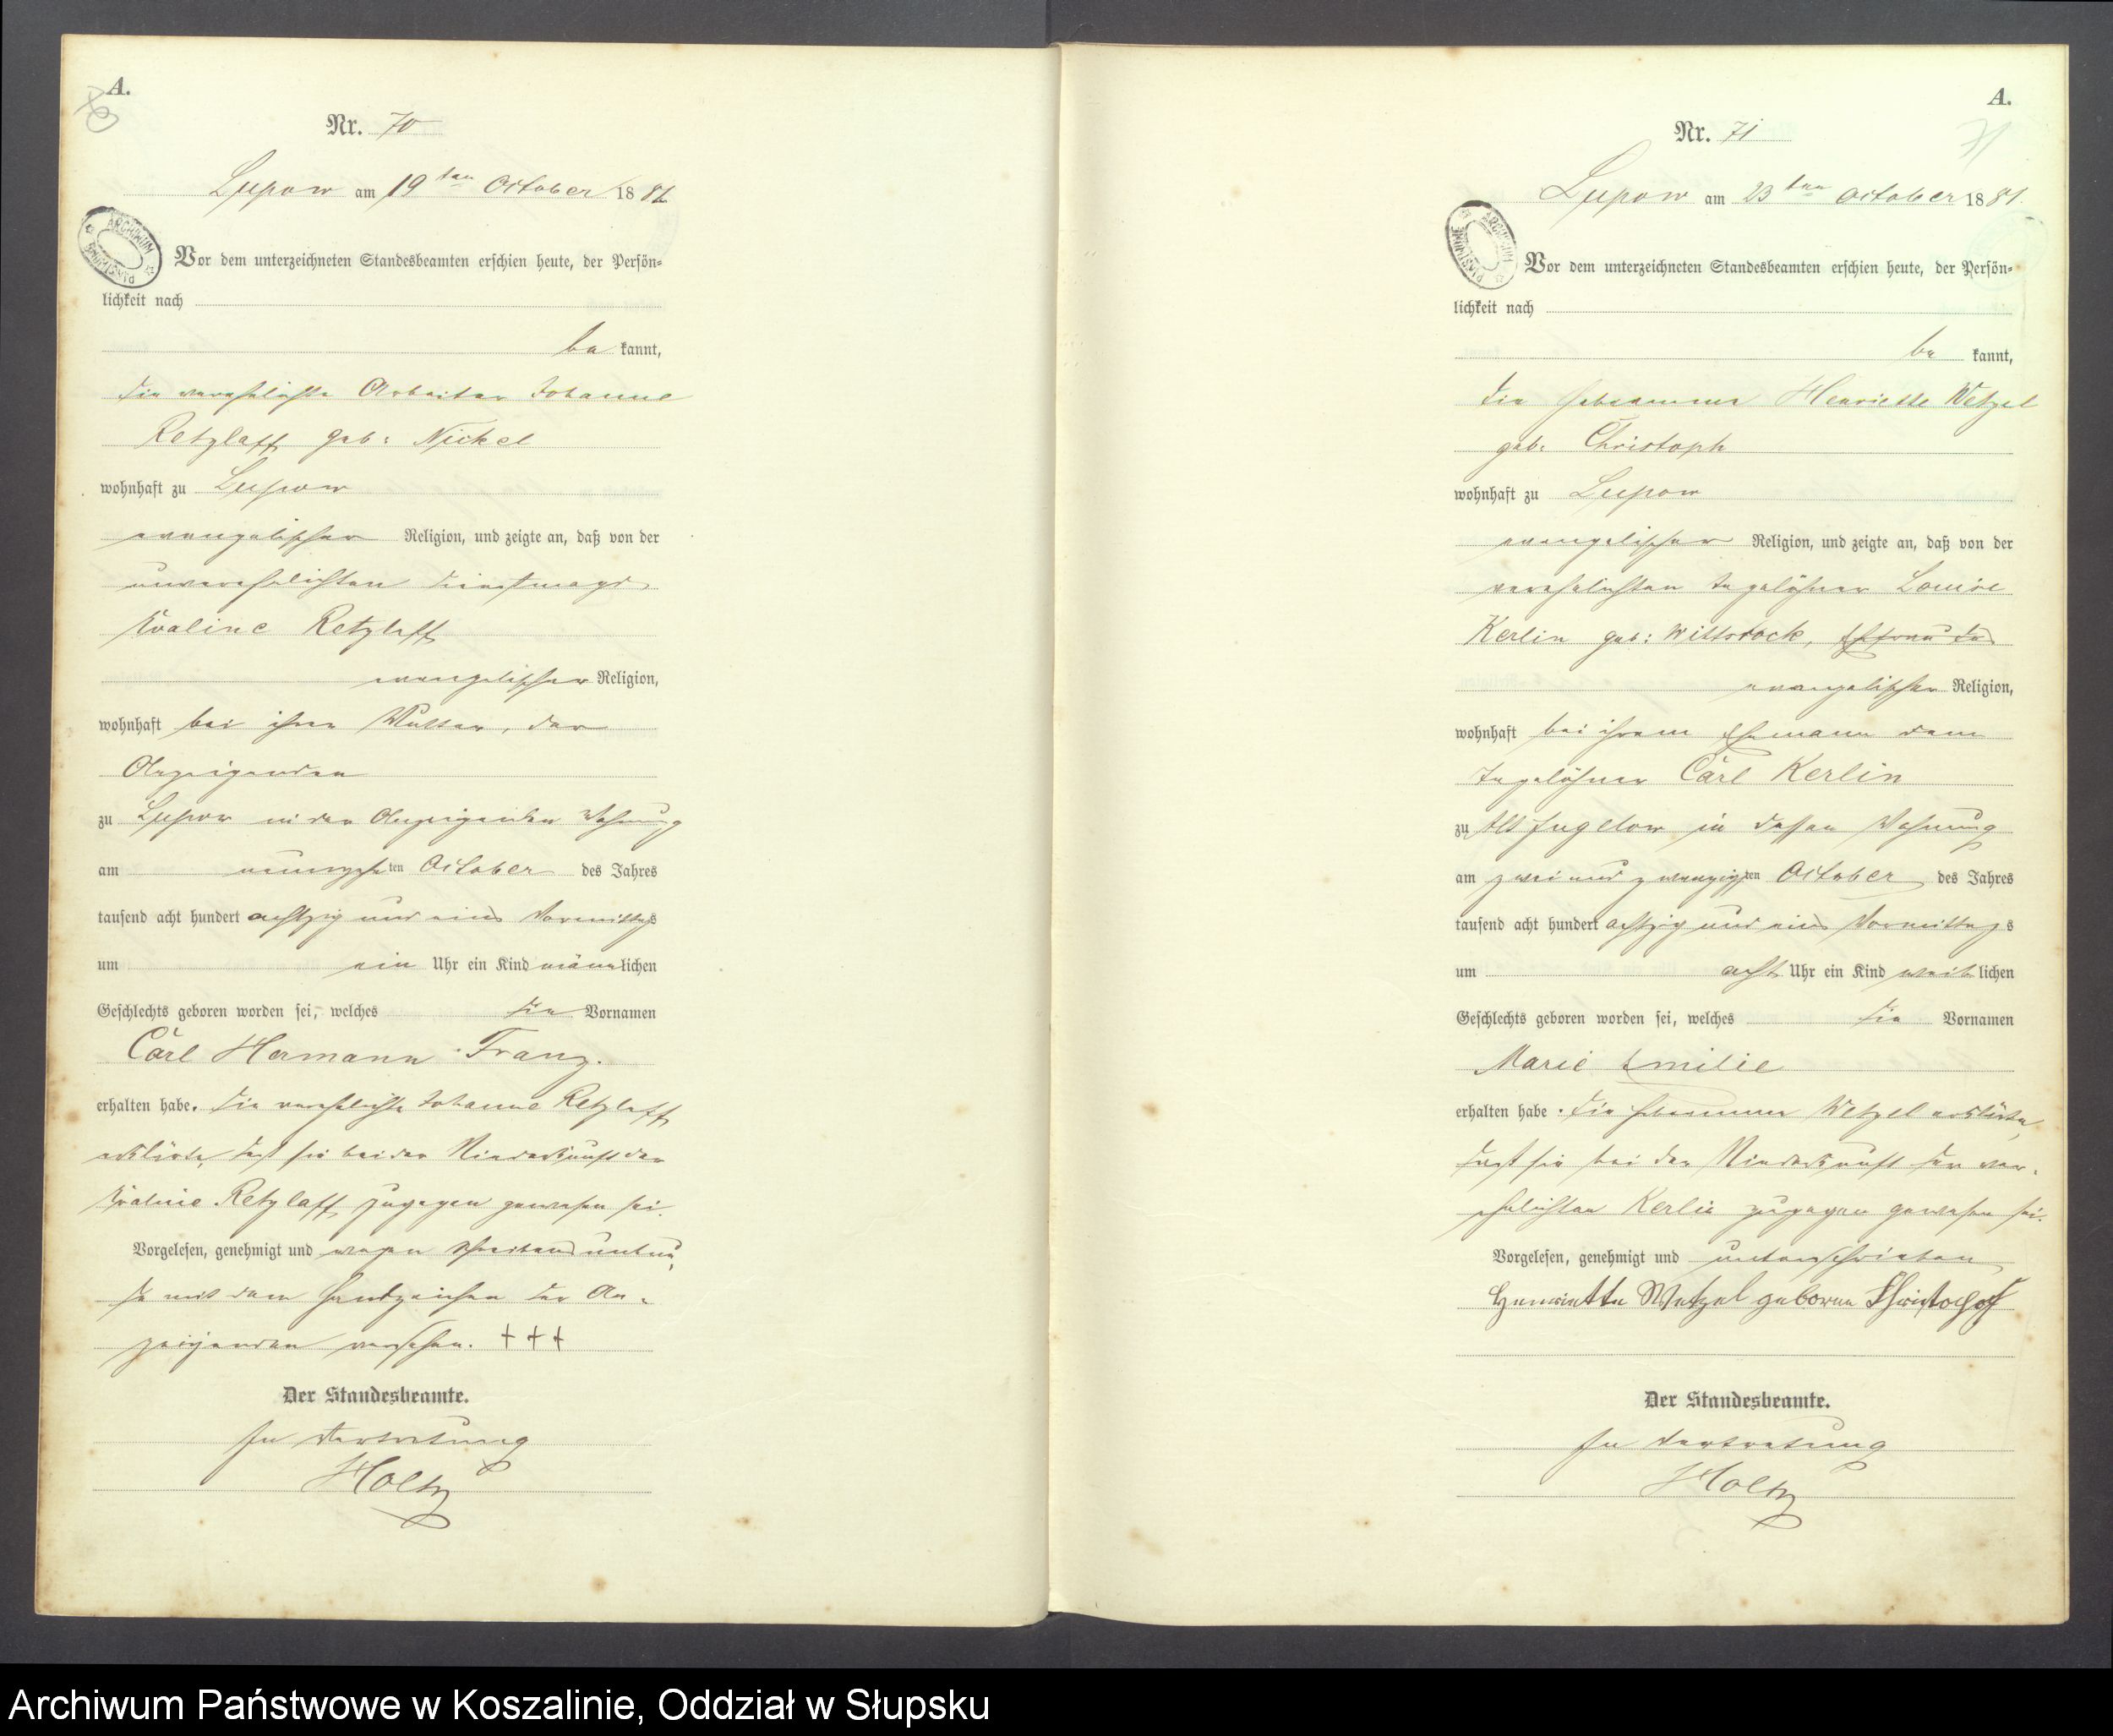 A.
70
Nr. 70
Lupow am 19ten October 1881
ARCHIWUM PAŃSTWOWE
Vor dem unterzeichneten Standesbeamten erschien heute, der Persön=
lichkeit nach
be kannt,
die verehelichte Arbeiter Johanne
Retzlaff geb: Nickel
wohnhaft zu Lupow
evangelischer Religion, und zeigte an, daß von der
unverehelichten Dienstmagd
Evaline Retzlaff
evangelischer Religion,
wohnhaft bei ihrer Mutter, der
Anzeigenden
zu Lupow in der Anzeigenden Wohnung
am neunzehnten October des Jahres
tausend acht hundert achtzig und eins Vormittags
um ein Uhr ein Kind männlichen
Geschlechts geboren worden sei, welches die Vornamen
Carl Hermann Franz.
erhalten habe. Die verehelichte Johanne Retzlaff
erklärte, daß sie bei der Niederkunft der
Evaline Retzlaff zugegen gewesen sei.
Vorgelesen, genehmigt und wegen Schreibensunkun,
de mit dem Handzeichen der An-
zeigenden versehen. +++
Der Standesbeamte.
In Vertretung
Holtz
A.
71
Nr. 71
Lupow am 23ten October 1881.
ARCHIWUM PAŃSTWOWE
Vor dem unterzeichneten Standesbeamten erschien heute, der Persön=
lichkeit nach
be kannt,
die Hebeamme Henriette Wetzel
geb: Christoph
wohnhaft zu Lupow
evangelischer Religion, und zeigte an, daß von der
verehelichten Tagelöhner Louise
Kerlin geb: Wittstock, Ehefrau des
evangelischer Religion,
wohnhaft bei ihrem Ehemann dem
Tagelöhner Carl Kerlin
zu Alt Jugelow in dessen Wohnung
am zwei und zwanzigsten October des Jahres
tausend acht hundert achtzig und eins Vormittags
um acht Uhr ein Kind weiblichen
Geschlechts geboren worden sei, welches die Vornamen
Marie Emilie
erhalten habe. Die Hebeamme Wetzel erklärte,
daß sie bei der Niederkunft der ver-
ehelichten Kerlin zugegen gewesen sei.
Vorgelesen, genehmigt und unterschrieben
Henriette Wetzel geboren Christophf
Der Standesbeamte.
In Vertretung
Holtz
Archiwum Państwowe w Koszalinie, Oddział w Słupsku